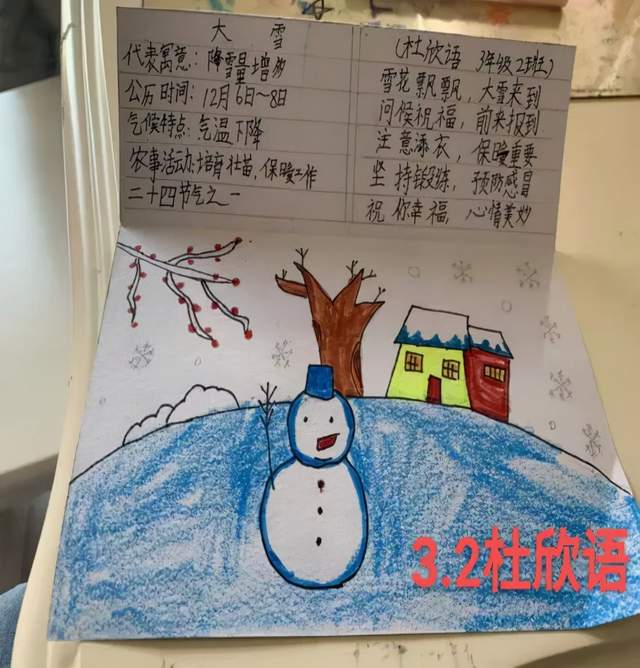 大雪
代表寓意：降雪量增多
公历时间：12月6日~8日
气候特点：气温下降
农事活动：培育壮苗，保暖工作
二十四节气之一
（杜欣语 3年级2班）
雪花飘飘，大雪来到
问候祝福，前来报到
注意添衣，保暖重要
坚持锻练，预防感冒
祝你幸福，心情美妙
3.2杜欣语